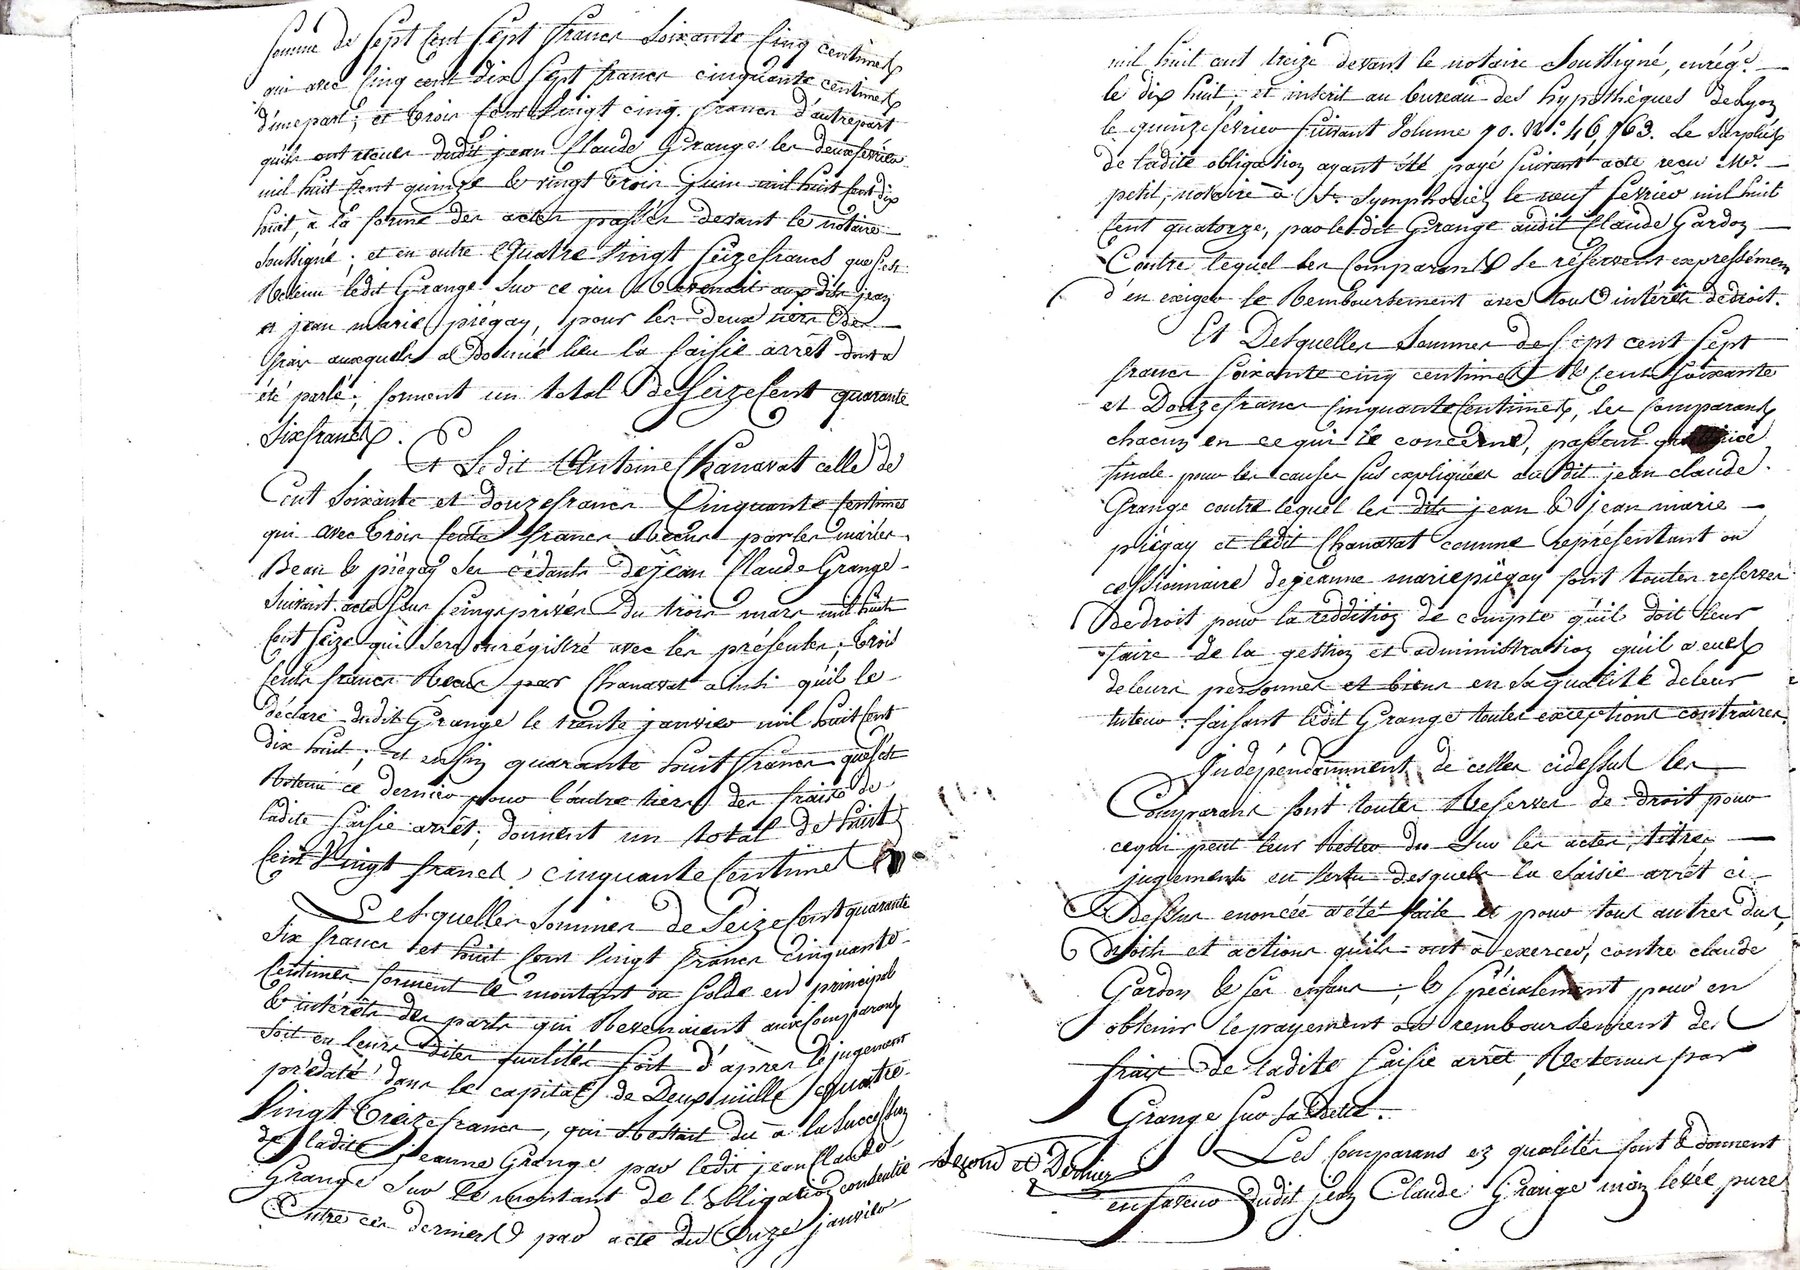 somme de sept cent sept francs soixante cinq centimes
qui avec cinq cent dix sept francs cinquante centimes
d'une part; et trois cent vingt cinq francs d'autre part
qu'ils ont reçues dudit jean Claude Grange les deux fevrier
mil huit cent quinze & vingt trois juin mil huit cent dix
huit, à la forme des actes passés devant le notaire
soussigné; et en outre quatre vingt seize francs que s'est
Retenu ledit Grange sur ce qui Revenait aux dits jean
et jean marie piégay, pour les deux tiers des
frais auxquels a donné lieu la saisie arrêt dont a
été parlé; forment un total de seize cent quarante
six francs.
Et Ledit Antoine Chanavat celle de
Cent soixante et douze francs Cinquante Centimes
qui avec trois cents francs Recus par les mariés
Bean & piégay ses cédants de jean Claude Grange
suivant acte sous seings privés du trois mars mil huit
cent seize qui sera enrégistré avec les présentes; trois
cents francs Recus par Chanavat ainsi qu'il le
déclare dudit Grange le trente janvier mil huit cent
dix huit; et enfin quarante huit francs que s'est
Retenu ce dernier pour l'autre tiers des frais de
ladite saisie arrêt; donnent un total de huit
Cent Vingt francs cinquante Centimes
Lesquelles sommes de Seize Cent quarante
six francs et huit cent vingt francs cinquante
Centimes forment le montant ou solde en principal
& intérêts des parts qui Revenaient aux Comparans
soit en leurs dites qualités soit d'après le jugement
prédaté dans le capital de Deux mille quatre
Vingt treize francs, qui Restait dû à la succession
de ladite jeanne Grange par ledit jean Claude
Grange sur le montant de l'obligation consentie
Entre ces derniers par acte du Onze janvier
mil huit cent treize devant le notaire soussigné, enrégé.
le dix huit; et inscrit au bureau des hypothèques de Lyon
le quinze fevrier suivant Volume 70. N.° 46,763. Le surplus
de ladite obligation ayant été payé suivant acte reçu Me.
petit, notaire à St. Symphorien le neuf fevrier mil huit
Cent quatorze, par ledit Grange audit Claude Gardon
Contre lequel les Comparans se réservent expressémen
d'en exiger le Remboursement avec tous intérêts de droit.
Et Desquelles sommes de sept cent sept
francs soixante cinq centimes & cent soixante
et Douze francs Cinquante Centimes, les Comparans
chacun en ce qui le concerne, passent quittance
finale pour les causes sus expliquées audit jean claude
Grange contre lequel les dits jean & jean marie
piégay et ledit Chanavat comme représentant ou
cessionnaire de jeanne marie piégay font toutes reserves
de droit pour la reddition de compte qu'il doit leur
faire de la gestion et administration qu'il a eues
de leurs personnes et biens en sa qualité de leur
tuteur: faisant ledit Grange toutes exceptions contraires.
Indépendamment de celles cidessus les
Comparans font toutes Reserves de droit pour
cequi peut leur Rester du sur les actes, titres,
jugements en vertu desquels la saisie arrêt ci-
dessus enoncée a été faite et pour tous autres dus,
Droits et actions qu'ils ont à exercer, contre claude
Gardon & ses enfans, & spécialement pour en
obtenir le payement ou remboursement des
frais de ladite saisie arrêt, Retenus par
Grange sur sa dette.
Les Comparans ez qualités font & donnent
Second et Dernier
en faveur dudit jean Claude Grange main levée pure